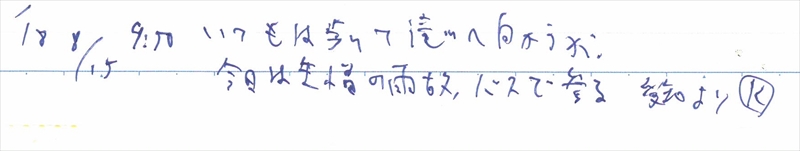 '18 8/15 9:50 いつもは歩いて滝へ向かうが、
今日は生憎の雨故、バスで参る 愛知より Ⓚ